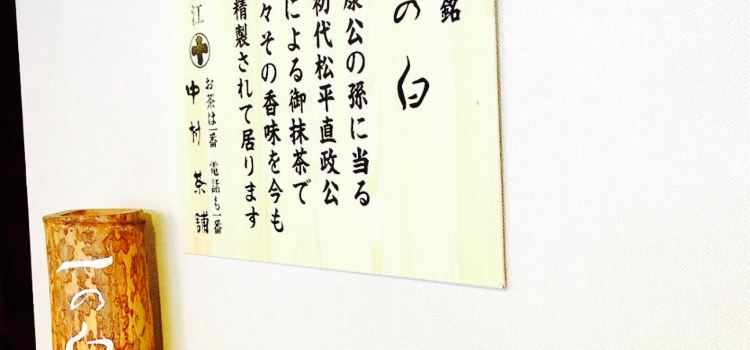 銘
の白
康公の孫に当る
初代松平直政公
による御抹茶で
々その香味を今も
精製されて居ります
江
お茶は一番 電話も一番
中村茶舗
一の白